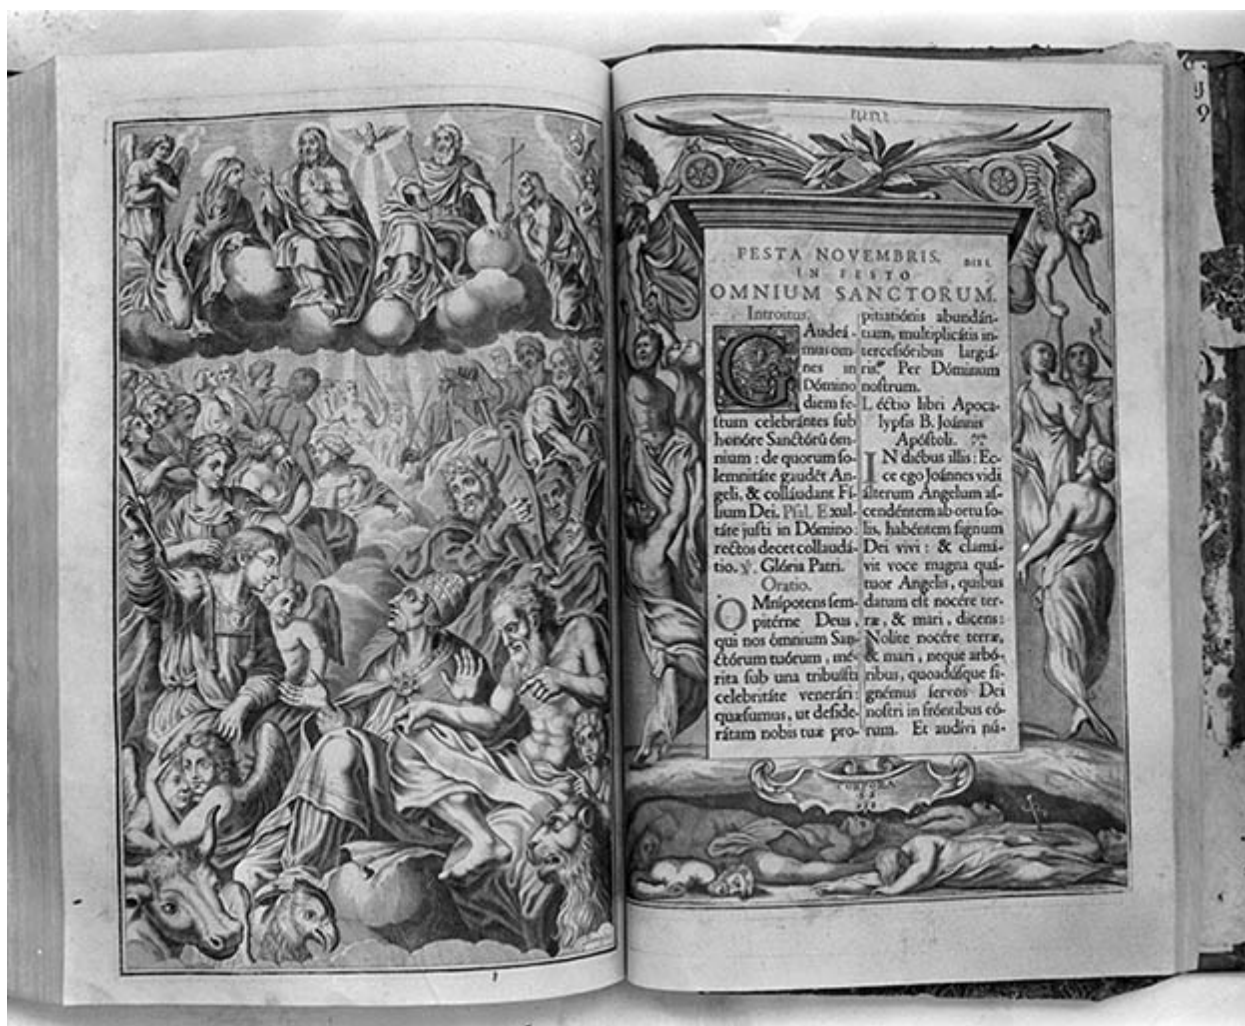 FESTA NOVEMBRIS.
DIE I.
IN FESTO
OMNIUM SANCTORUM.
Introitus.
GAudeá-
mus om-
nes in
Dómino
diem fe-
stum celebrántes sub
honóre Sanctórũ óm-
nium : de quorum so-
lemnitáte gaudẽt An-
geli, & colláudant Fí-
lium Dei. Psal. Exul-
táte justi in Dómino :
rectos decet collaudá-
tio. ℣. Glória Patri.
Oratio.
OMnípotens sem-
pitérne Deus,
qui nos ómnium San-
ctórum tuórum, mé-
rita sub una tribuísti
celebritáte venerári :
quæsumus, ut deside-
rátam nobis tuæ pro-
pitiatiónis abundán-
tiam, multiplicátis in-
tercessóribus largiá-
ris. Per Dóminum
nostrum.
Léctio libri Apoca-
lypsis B. Joánnis
Apóstoli.
IN diébus illis : Ec-
ce ego Joánnes vidi
álterum Angelum as-
cendéntem ab ortu so-
lis, habéntem signum
Dei vivi : & clamá-
vit voce magna quá-
tuor Angelis, quibus
datum est nocére ter-
ræ, & mari, dicens :
Nolíte nocére terræ,
& mari, neque arbó-
ribus, quoadúsque si-
gnémus servos Dei
nostri in fróntibus eó-
rum. Et audívi nú-
CORPORA